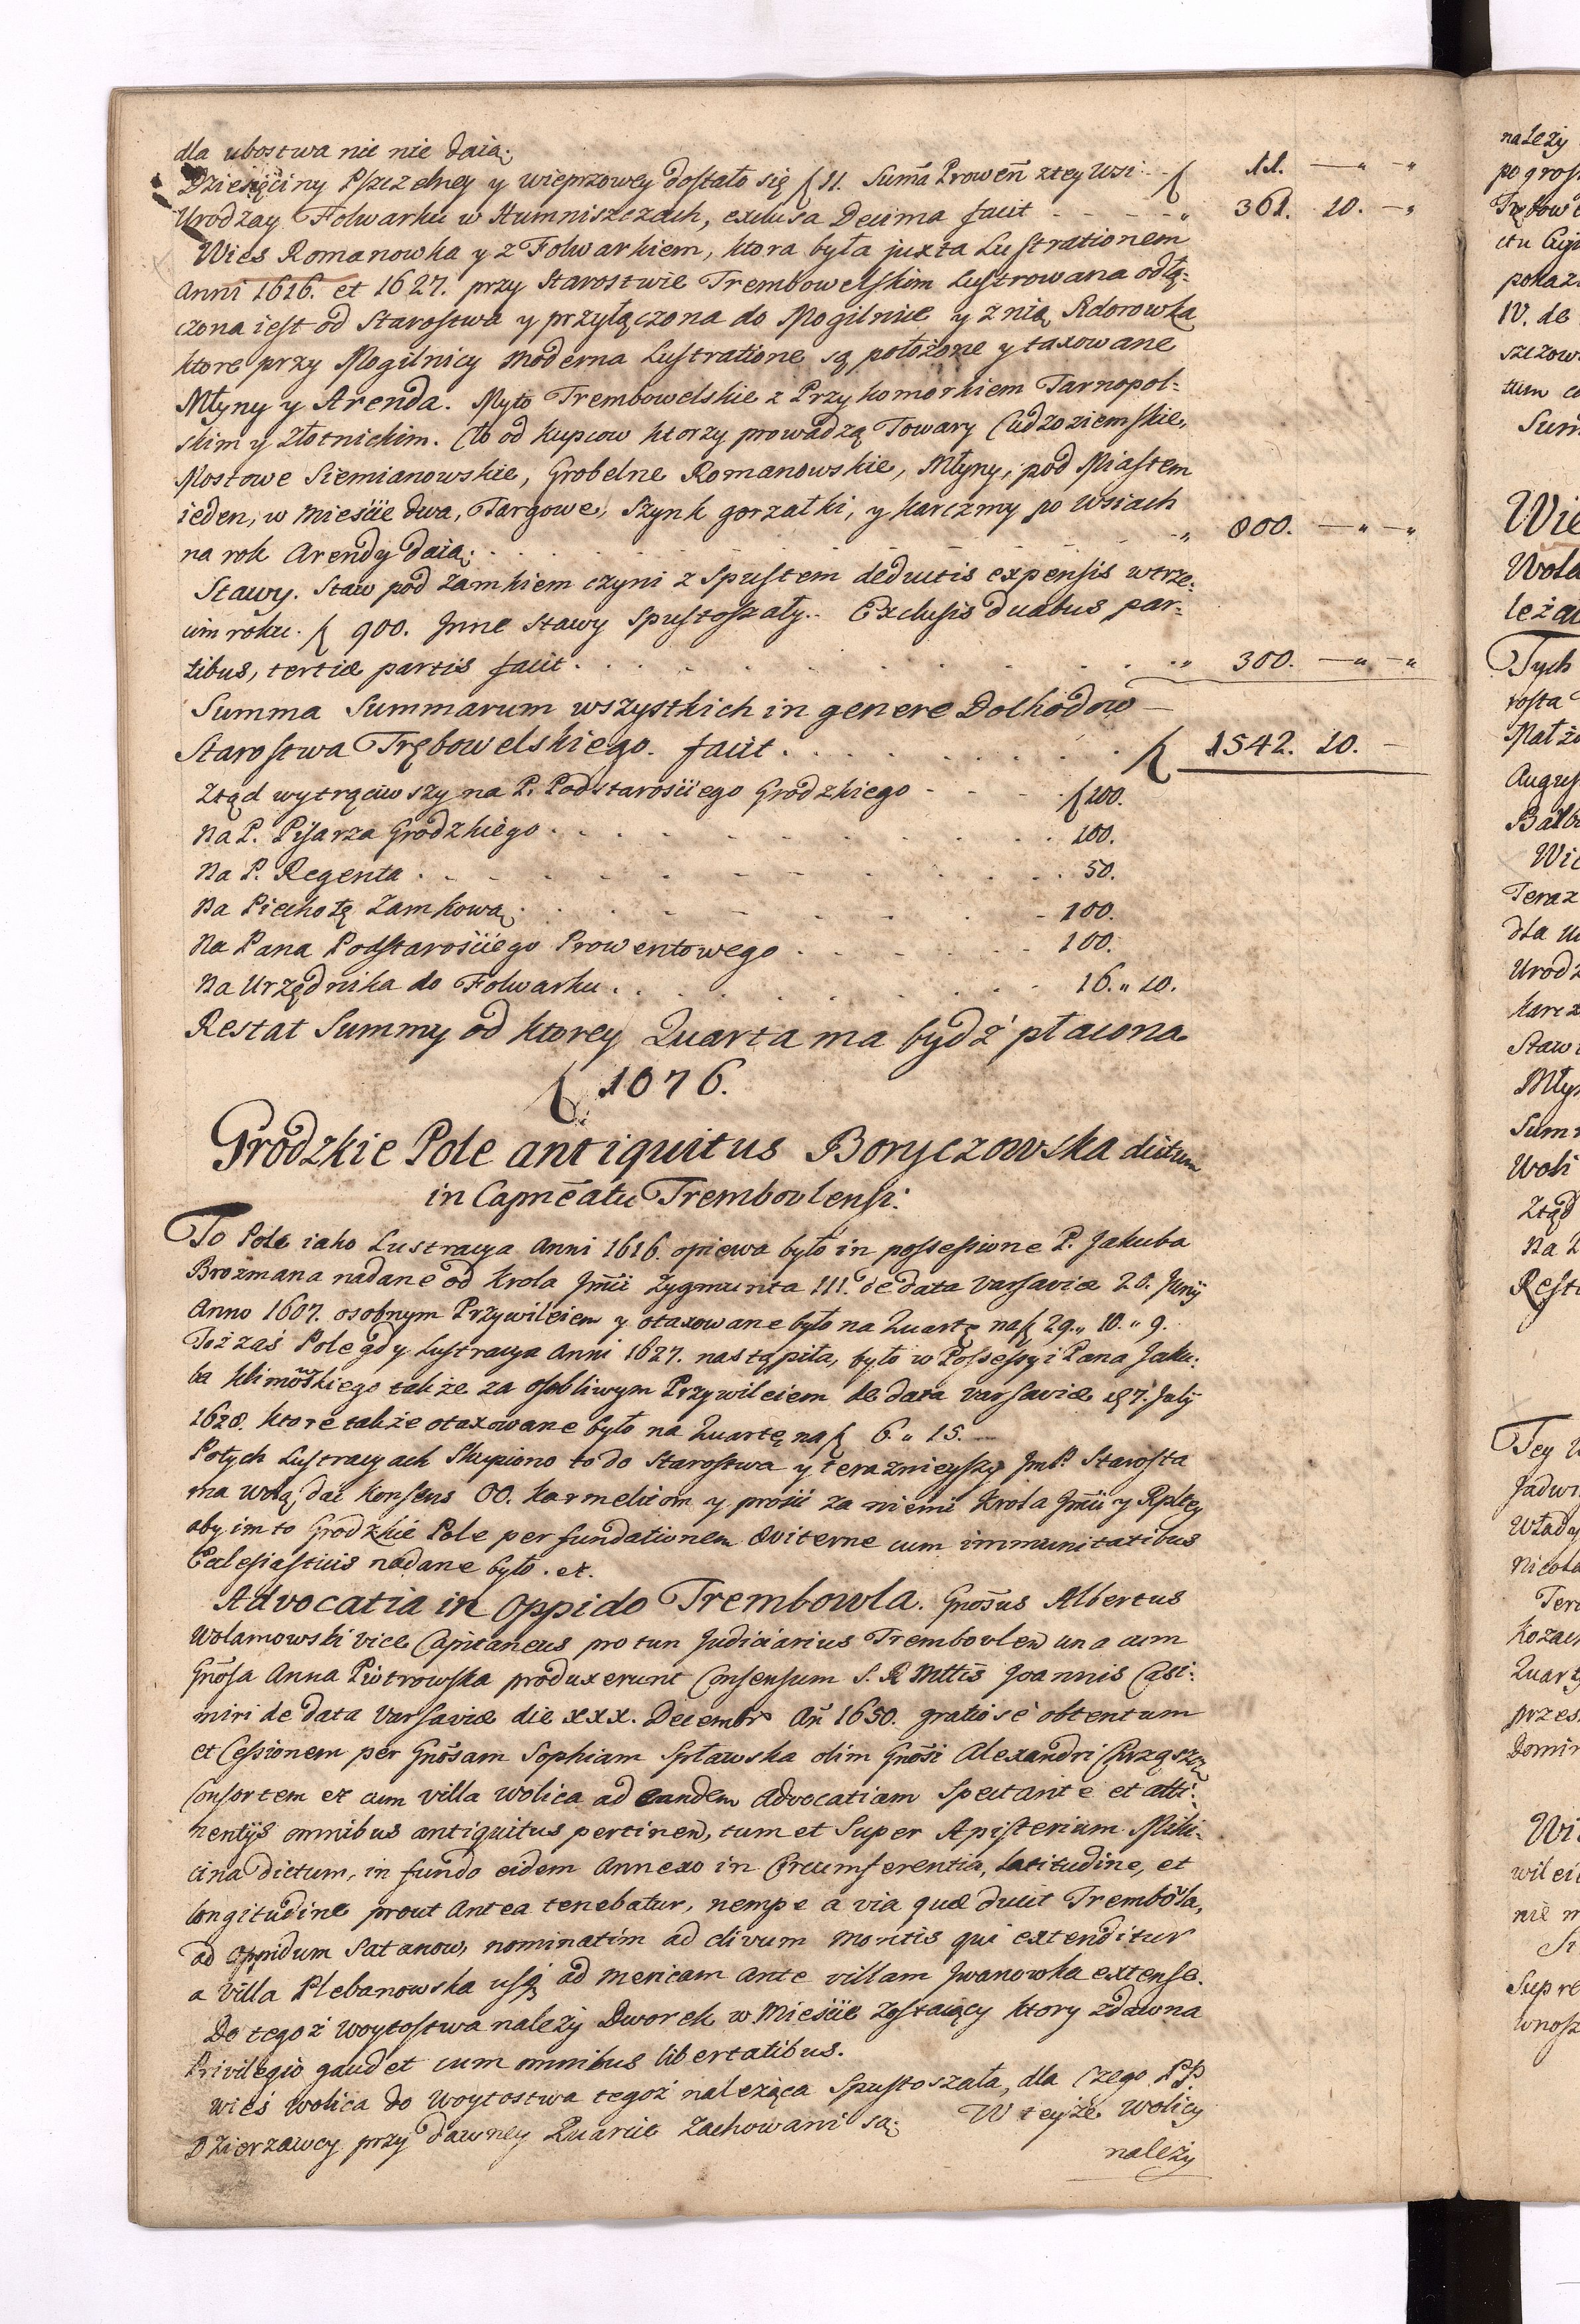 dla ubostwa nic nie daią.
Dziesięciny Pszczelney y wieprzowey dostało się f 11. Suma Prowen z tey Wsi f 11. — " — "
Urodzay Folwarku w Humniszczach, exclusa Decima facit - - - - - " 361. 10. — "
Wieś Romanowka y z Folwarkiem, ktora była juxta Lustrationem
Anni 1616. et 1627. przy Starostwie Trembowelskim Lustrowana odłą:
czona iest od Starostwa y przyłączona do Mogilnice y z nią Sidorowka
ktore przy Mogilnicy moderna Lustratione są położone y taxowane
Młyny y Arenda. Myto Trembowelskie z Przykomorkiem Tarnopol:
skim y Złotnickim. Cło od kupcow ktorzy prowadzą Towary Cudzoziemskie,
Mostowe Siemianowskie, Grobelne Romanowskie, Młyny, pod Miastem
ieden, w mieście dwa, Targowe, Szynk gorzałki, y karczmy po Wsiach
na rok Arendy daią . . . . . . . . . . " 800. — " — "
Stawy. Staw pod Zamkiem czyni z Spustem deductis expensis w trze:
cim roku. f 900. Inne Stawy Spustoszały.. Exclusis duabus par:
tibus, tertiæ partis facit . . . . . . . . . . " 300. — " — "
Summa Summarum wszystkich in genere Dochodow —
Starostwa Trębowelskiego. facit . . . . . . . . . . f 1542. 10. —
Ztąd wytrąciwszy na P. Podstarosciego Grodzkiego - - - - f 100.
Na P. Pisarza Grodzkiego . . . . . . . . . . 100.
Na P. Regenta . . . . . . . . . . 50.
Na Piechotę Zamkową . . . . . . . . . . 100.
Na Pana Podstarosciego Prowentowego . . . . . . 100.
Na Urzędnika do Folwarku . . . . . . . . . . 16. " 10.
Restat Summy od ktorey Quarta ma bydź płacona
f 1076.
Grodzkie Pole antiquitus Boryczowska dictum
in Capneatu Trembovlensi.
To Pole iako Lustracya Anni 1616. opiewa było in possessione P. Jakuba
Brozmana nadane od Krola Jmci Zygmunta III. de data Varsaviæ 20. Junij
Anno 1607. osobnym Przywileiem y otaxowane było na Quartę na f 29. " 10. " 9.
Toż zaś Pole gdy Lustracya Anni 1627. nastąpiła, było w Possessyi Pana Jaku:
ba Klimowskiego także za osobliwym Przywileiem de data Varsaviæ 7. July
1620. ktore także otaxowane było na Quartę na f 6. " 15. —
Po tych Lustracyach Skupiono to do Starostwa y teraznieyszy JmP. Starosta
ma wolą, dać konsens OO. Karmelitom y prosić za niemi Krola Jmci y Rpltey
aby im to Grodzkie Pole per fundationem æviterne cum immunitatibus
Ecclesiasticis nadane było. et.
Advocatia in Oppido Trembowla. Gnosus Albertus
Wolamowski vice Capitaneus pro tun Judiciarius Trembovlen una cum
Gnosa Anna Piotrowska produxerunt Consensum S. R Mttis Joannis Casi:
miri de data Varsaviæ die xxx. Decembr An 1650. gratiose obtentum
et Cessionem per Gnosam Sophiam Spławska olim Gnosi Alexandri Chrząszcz
Consortem et cum villa Wolica ad eandem Advocatiam Spectante et atti:
nentijs omnibus antiquitus pertinen, tum et Super Apisterium Miki:
cina dictum, in fundo eidem Annexo in Circumferentia, Latitudine, et
longitudine prout antea tenebatur, nempe a via quæ ducit Trembola,
ad Oppidum Satanow, nominatim ad clivum Montis qui extenditur
a villa Plebanowska usq ad mericam ante villam Jwanowka extense.
Do tegoż Woytostwa należy Dworek w Mieście zostaiący ktory zdawna
Privilegio gaudet cum omnibus libertatibus.
Wieś Wolica do Woytostwa tegoż należąca Spustoszała, dla czego PP.
Dzierzawcy przy dawney Quarcie Zachowani są. W teyże Wolicy
należy